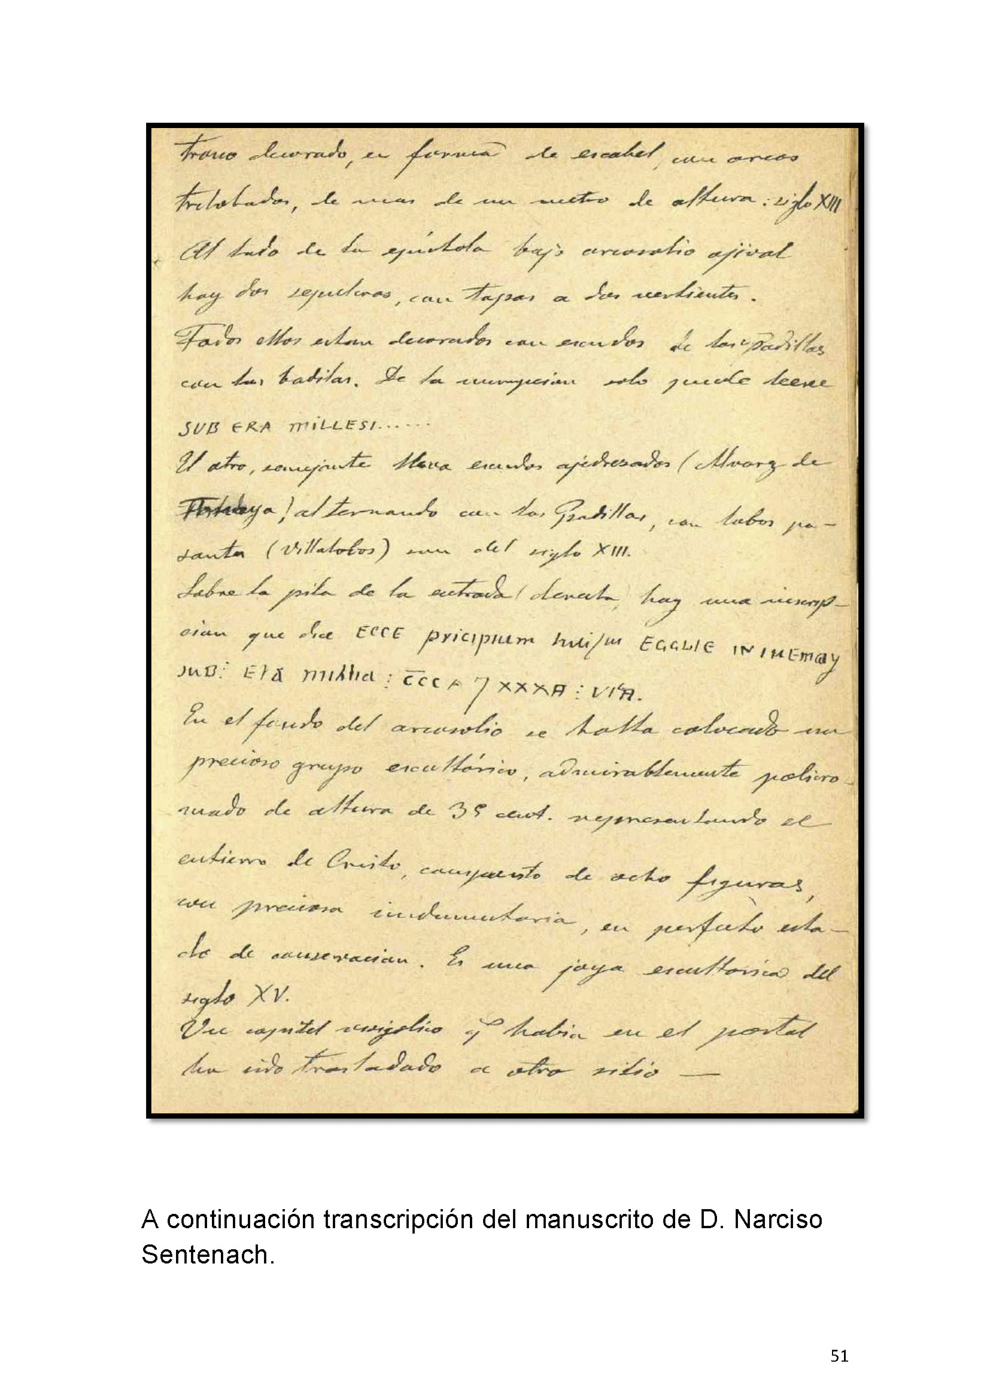 trono decorado, en forma de escabel, con arcos
trilobados, de mas de un metro de altura: siglo XIII
Al lado de la epistola bajo arcosolio ojival
hay dos sepulcros, con tapas a dos vertientes.
Todos ellos estan decorados con escudos de los Padillas
con las badilas. De la inscripcion solo puede leerse
SUB ERA MILLESI......
El otro, semejante lleva escudos ajedrezados (Alvarz de
alternando con los Padillas, con lobos pa-
santes (Villalobos) son del siglo XIII.
Sobre la pila de la entrada derecha, hay una inscrip-
cion que dice ECCE pricipium
SUB: : CCCA 7 XXXA : VIA.
En el fondo del arcosolio se halla colocado un
precioso grupo escultórico, admirablemente policro-
mado de altura de 35 cent. representando el
entierro de Cristo, compuesto de ocho figuras,
con preciosa indumentaria, en perfecto esta-
do de conservacion. Es una joya escultorica del
siglo XV.
Un capitel visigotico q habia en el portal
ha sido trasladado a otro sitio —
A continuación transcripción del manuscrito de D. Narciso
Sentenach.
51